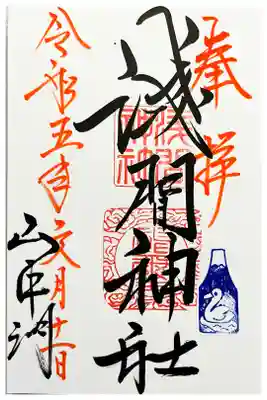 奉拝
浅間神社
令和五年文月十一日
山中湖